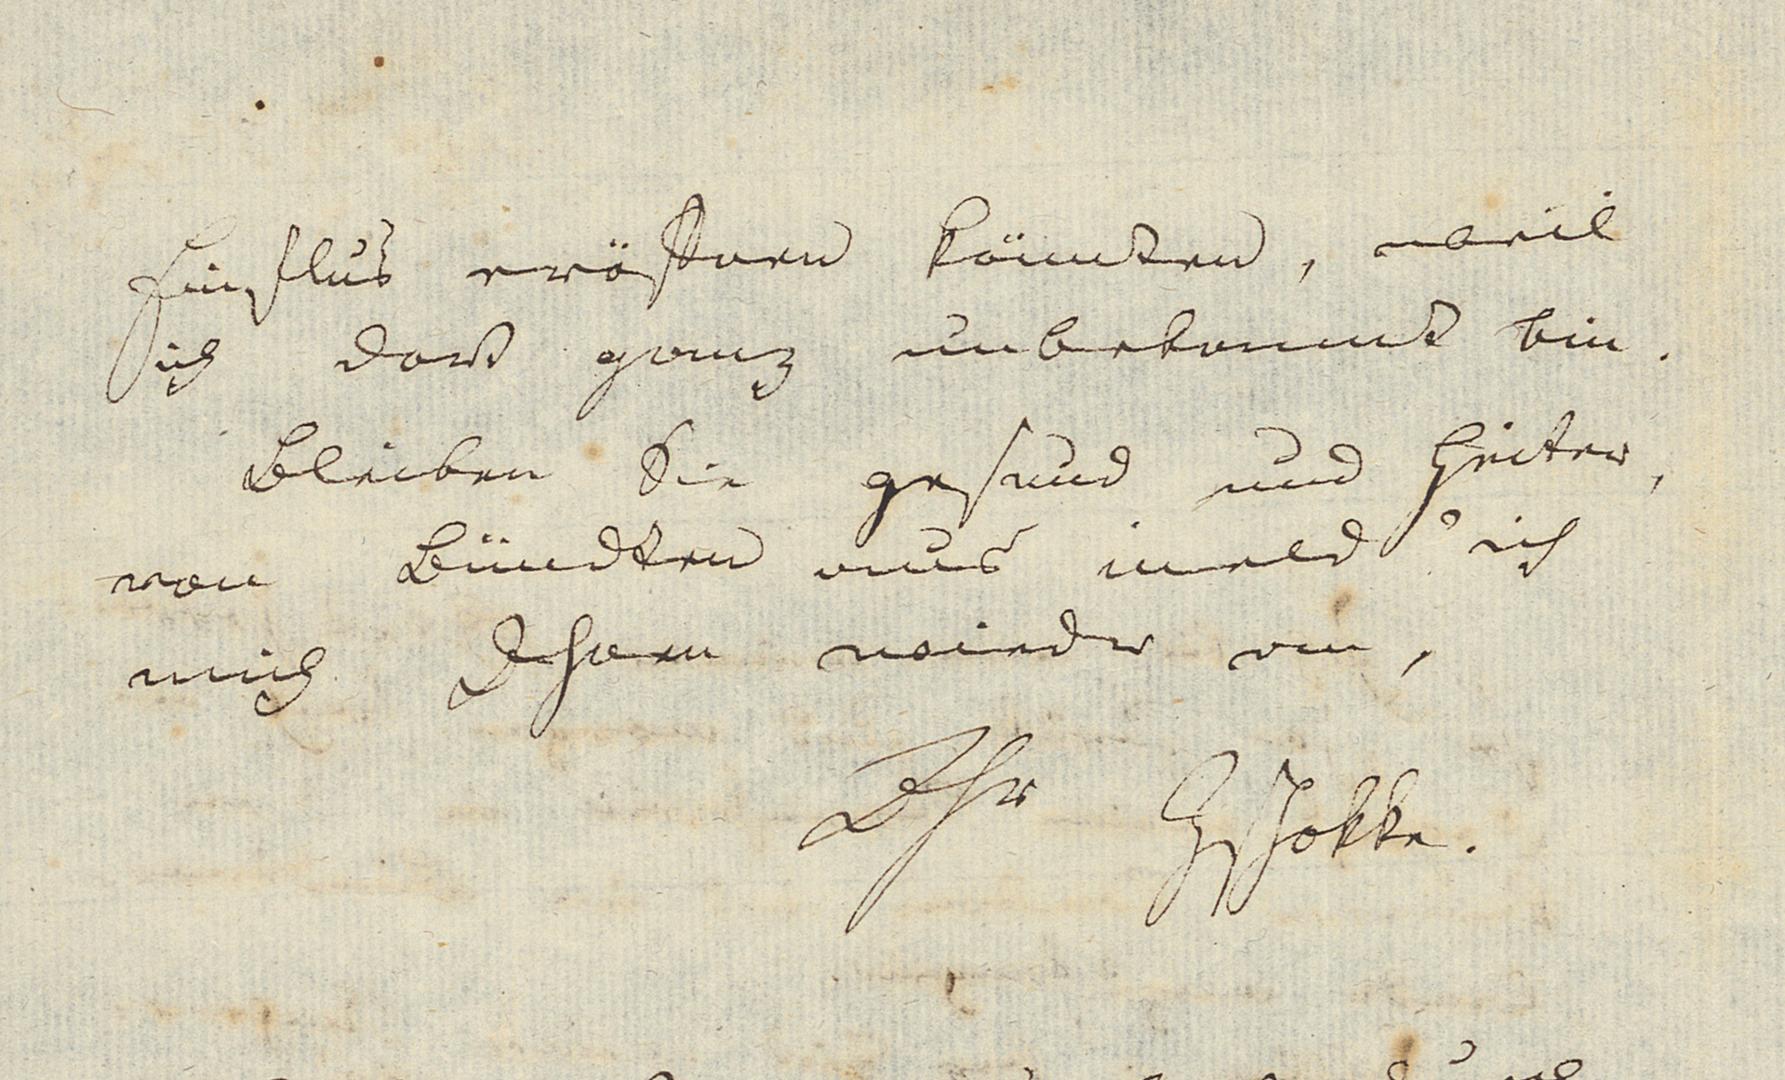 Einflus eröffnen könnten, weil
ich dort ganz unbekannt bin.
Bleiben Sie gesund und heiter,
von Bündten aus meld' ich
mich Ihnen wieder an,
Ihr Zschokke.